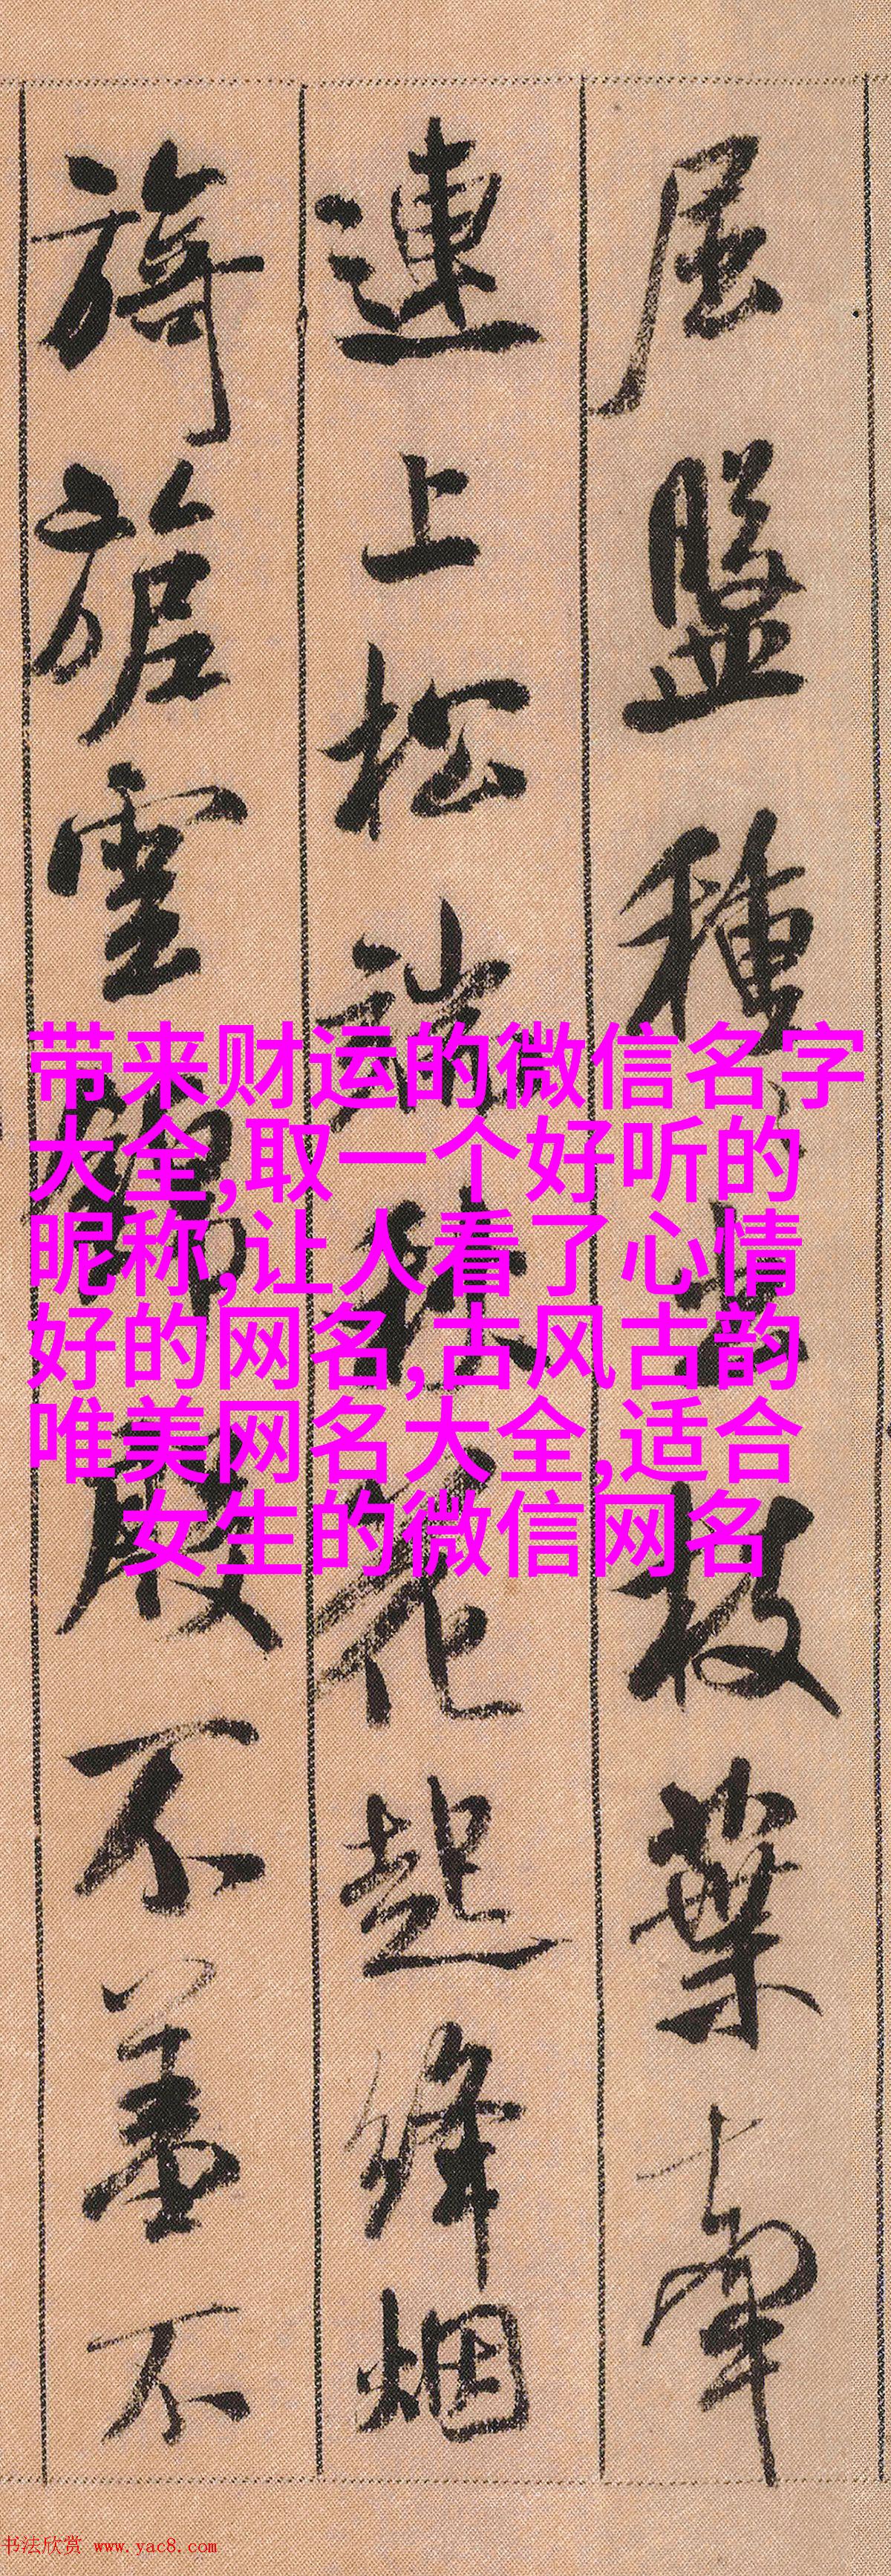 屈盤種々出枝葉牽
連上松端秋花起絳烟
旖旎雲錦殷不羞不
带来财运的微信名字
大全,取一个好听的
昵称,让人看了心情
好的网名,古风古韵
唯美网名大全,适合
女生的微信网名
书法欣赏 www.yac8.com